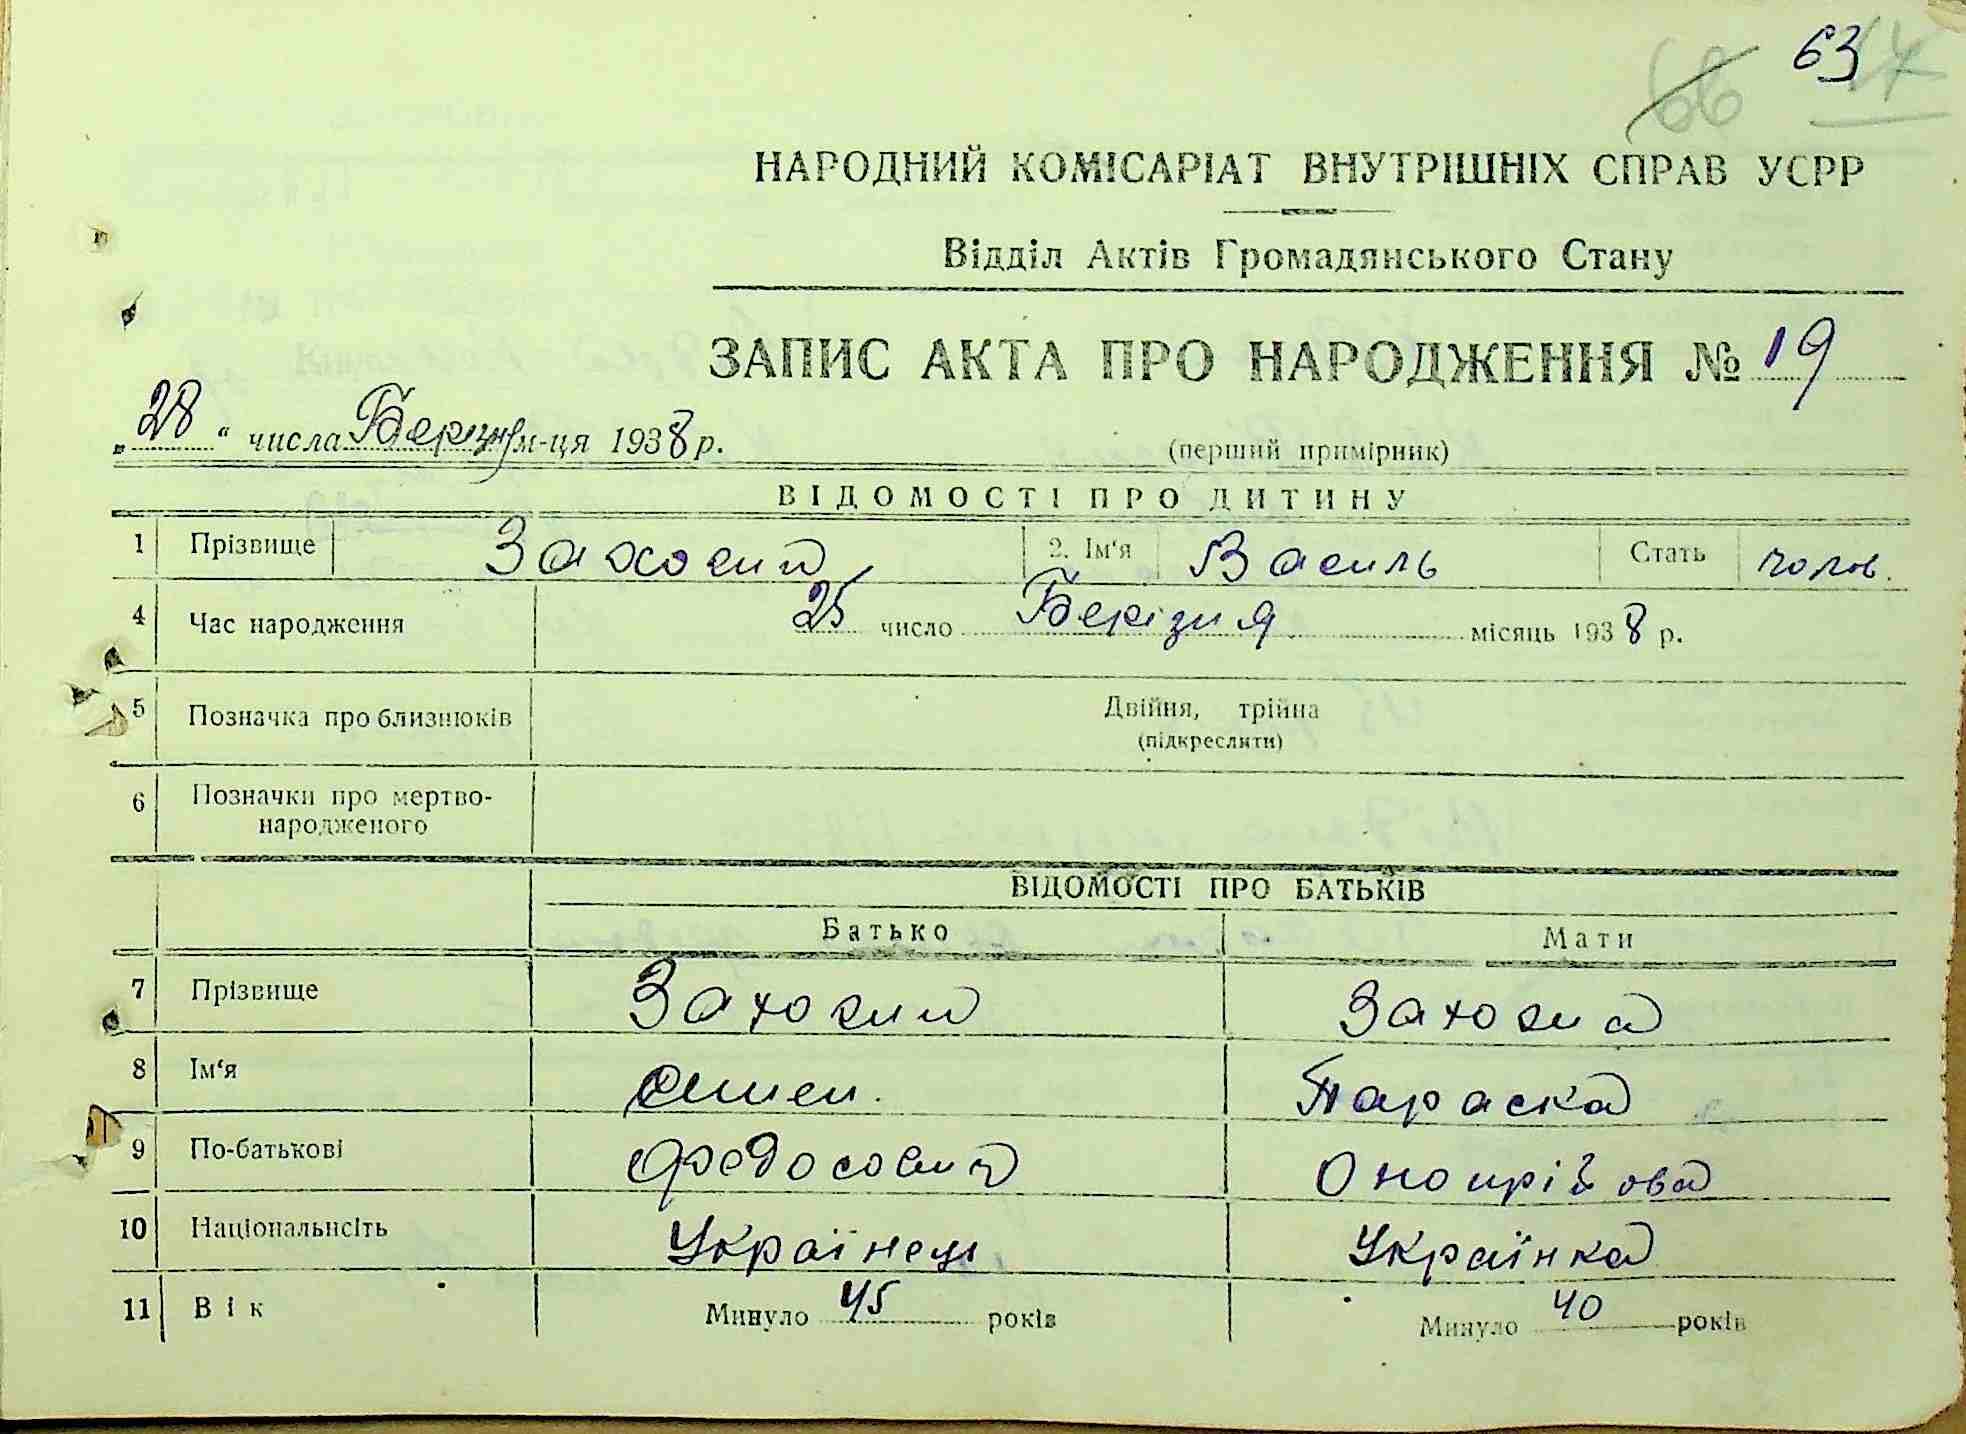 63
66
НАРОДНИЙ КОМІСАРІАТ ВНУТРІШНІХ СПРАВ УСРР
Відділ Актів Громадянського Стану
ЗАПИС АКТА ПРО НАРОДЖЕННЯ № 19
„28“ числа Берізня м-ця 1938 р.
(перший примірник)
ВІДОМОСТІ ПРО ДИТИНУ
1 Прізвище 2. Ім‘я Василь Стать чолов.
4 Час народження 25 число Берізня місяць 1938 р.
5 Позначка про близнюків Двійня, трійна
(підкреслити)
6 Позначки про мертво-
народженого
ВІДОМОСТІ ПРО БАТЬКІВ
Батько Мати
7 Прізвище
8 Ім‘я Семен. Параска
9 По-батькові Федосович Оноприйова
10 Національнсіть Українець Українка
11 Вік Минуло 45 років Минуло 40 років